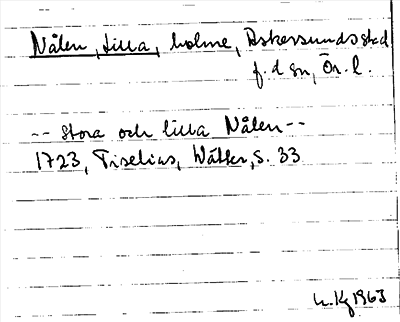 Nålen, Lilla, holme, Askersunds stad
f. d sn, Ör. l.
-- Stora och lilla Nålen --
1723, Tiselius, Wätter, S. 33
L. Kg 1963